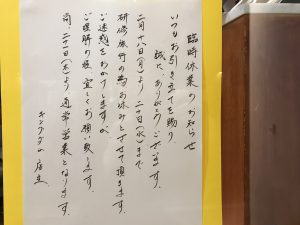 臨時休業のお知らせ
いつもお引き立てを賜り
誠にありがとうございます。
二月十八日(月)より二十日(水)まで
研修旅行の為お休みとさせて頂きます。
ご迷惑をおかけしますが、
ご理解の程、宜しくお願い致します。
尚、二十一日(木)より通常営業となります。
キングダム 店主